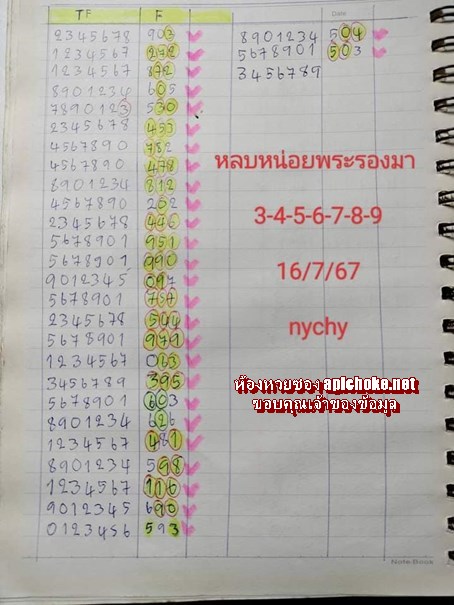 TF F
2345678 903
1234567 272
1234567 872
8901234 605
7890123 530
2345678 453
4567890 782
4567890 478
8901234 812
4567890 202
2345678 446
5678901 951
5678901 990
9012345 097
5678901 757
2345678 544
5678901 971
1234567 063
3456789 395
5678901 603
8901234 626
1234567 481
8901234 598
1234567 116
9012345 690
0123456 593
Date
8901234 504
5678901 503
3456789
หลบหน่อยพระรองมา
3-4-5-6-7-8-9
16/7/67
nychy
ห้องหวยซอง apichoke.net
ขอบคุณเจ้าของข้อมูล
Note Book